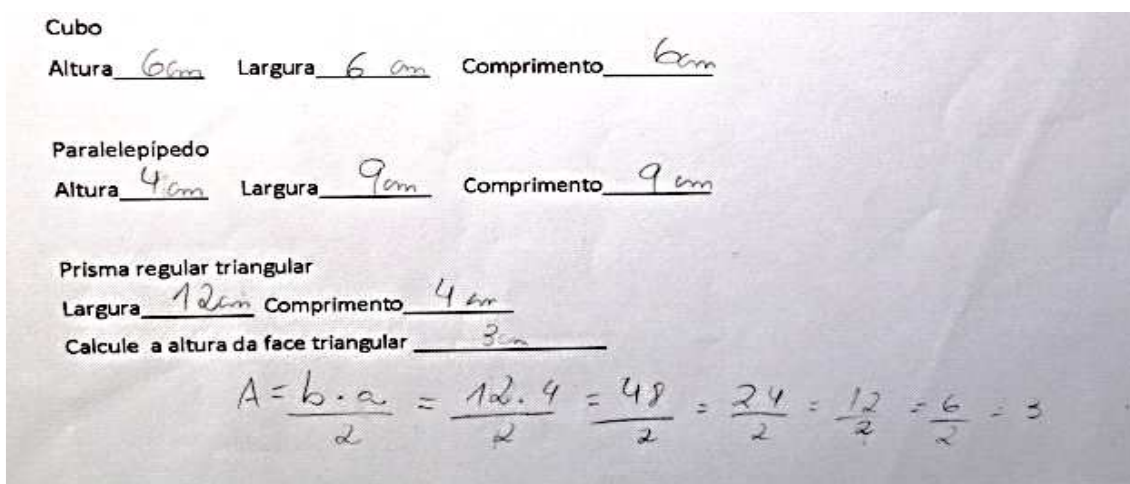 Cubo
Altura 6cm Largura 6 cm Comprimento 6cm
Paralelepípedo
Altura 4 cm Largura 9cm Comprimento 9 cm
Prisma regular triangular
Largura 12cm Comprimento 4 cm
Calcule a altura da face triangular 3cm
A = b . a / 2 = 12 . 4 / 2 = 48 / 2 = 24 / 2 = 12 / 2 = 6 / 2 = 3